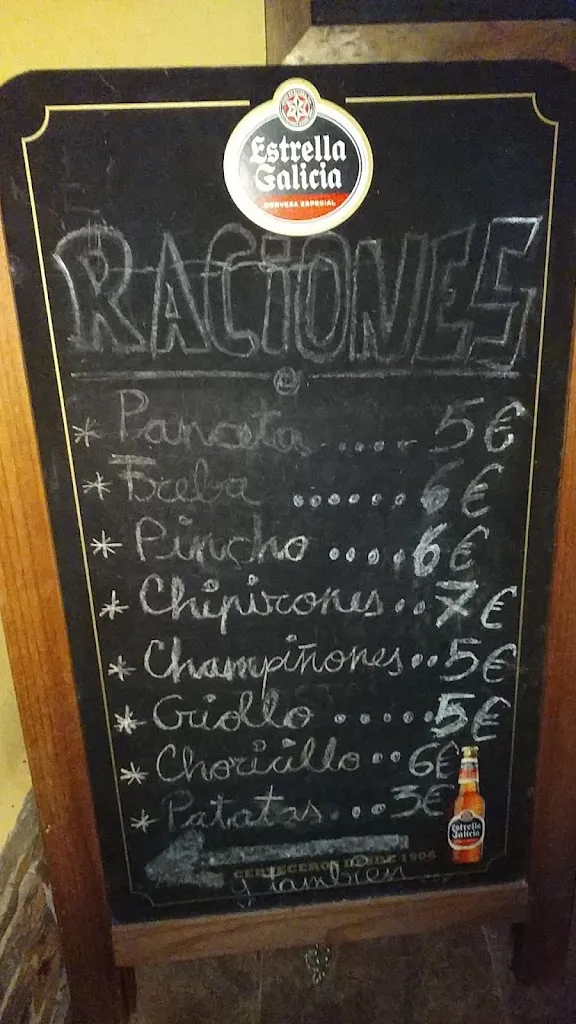 Estrella
Galicia
CERVEZA ESPECIAL
RACIONES
* Panceta ..... 5€
* Breba ...... 6€
* Pincho .... 6€
* Chipirones .. 7€
* Champiñones .. 5€
* Criollo ..... 5€
* Choricillo .. 6€
* Patatas ... 3€
Estrella
Galicia
CERVECEROS DESDE 1906
y también ...